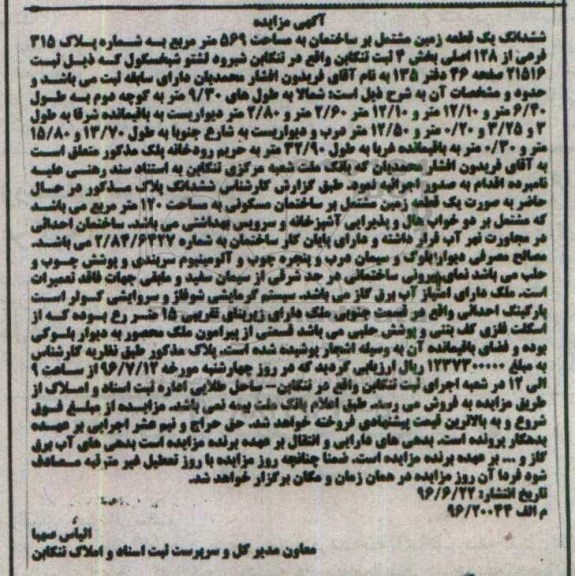 آگهی مزایده
ششدانگ یک قطعه زمین مشتمل بر ساختمان به مساحت ۵۶۹ متر مربع به شماره پلاک ۳۱۵
فرعی از ۱۲۸ اصلی بخش ۴ ثبت تنکابن واقع در تنکابن شیرود لشتو شیخسکول که ذیل ثبت
۲۱۵۱۶ صفحه ۴۶ دفتر ۱۳۵ به نام آقای فریدون افشار محمدیان دارای سابقه ثبت می باشد و
حدود و مشخصات آن به شرح ذیل است: شمالا به طول های ۹/۳۰ متر به کوچه دوم به طول
۶/۴۰ متر و ۱۰/۱۲ متر و ۱۰/۱۲ متر ۲/۶۰ متر و ۲/۸۰ متر دیواریست به باقیمانده شرقا به طول
۲ و ۳/۲۵ و ۰/۲۰ متر و ۱۲/۵۰ متر درب و دیواریست به شارع جنوبا به طول ۱۳/۷۰ و ۱۵/۸۰
متر و ۰/۳۰ متر به باقیمانده غربا به طول ۳۲/۹۰ متر به حریم رودخانه پلاک مذکور متعلق است
به آقای فریدون افشار محمدیان که بانک ملت شعبه مرکزی تنکابن به استناد سند رهنی علیه
نامبرده اقدام به صدور اجرائیه نمود. طبق گزارش کارشناس ششدانگ پلاک مذکور در حال
حاضر به صورت یک قطعه زمین مشتمل بر ساختمان مسکونی به مساحت ۱۲۰ متر مربع می باشد
که مشتمل بر دو خواب هال و پذیرایی آشپزخانه و سرویس بهداشتی می باشد. ساختمان احداثی
در مجاورت نهر آب قرار داشته و دارای پایان کار ساختمان به شماره ۲/۸۴/۶۴۲۷ می باشد.
مصالح مصرفی دیوار بلوک و سیمان درب و پنجره چوب و آلومینیوم سربندی و پوشش چوب و
حلب می باشد نمای بیرونی ساختمانی در حد شرقی از سیمان سفید و مابقی جهات فاقد تعمیرات
است. ملک دارای امتیاز آب برق گاز می باشد. سیستم گرمایشی شوفاژ و سرمایشی کولر است
پارکینگ احداثی واقع در قسمت جنوبی ملک دارای زیربنای تقریبی ۱۵ متر مربع بوده که از
اسکلت فلزی کف بتنی و پوشش حلبی می باشد قسمتی از پیرامون ملک محصور به دیوار بلوکی
بوده و فضای باقیمانده آن به وسیله اشجار پوشیده شده است. پلاک مذکور طبق نظریه کارشناس
به مبلغ ۱۲۳۷۳۰۰۰۰۰ ریال ارزیابی گردید که در روز چهارشنبه مورخه ۹۶/۷/۱۲ از ساعت ۹
الی ۱۲ در شعبه اجرای ثبت تنکابن واقع در تنکابن – ساحل طلایی اداره ثبت اسناد و املاک از
طریق مزایده به فروش می رسد. طبق اعلام بانک ملک بیمه نمی باشد. مزایده از مبلغ فوق
شروع و به بالاترین قیمت پیشنهادی فروخته خواهد شد. حق حراج و نیم عشر اجرایی بر عهده
بدهکار پرونده است. بدهی های دارایی و انتقال بر عهده برنده مزایده است بدهی های آب برق
گاز و ... بر عهده برنده مزایده است. ضمنا چنانچه روز مزایده با روز تعطیل غیر مترقبه مصادف
شود فردا آن روز مزایده در همان زمان و مکان برگزار خواهد شد.
تاریخ انتشار: ۹۶/۶/۲۲
م الف ۹۶/۲۰۰۴۴
الیاس صهبا
معاون مدیر کل و سرپرست ثبت اسناد و املاک تنکابن